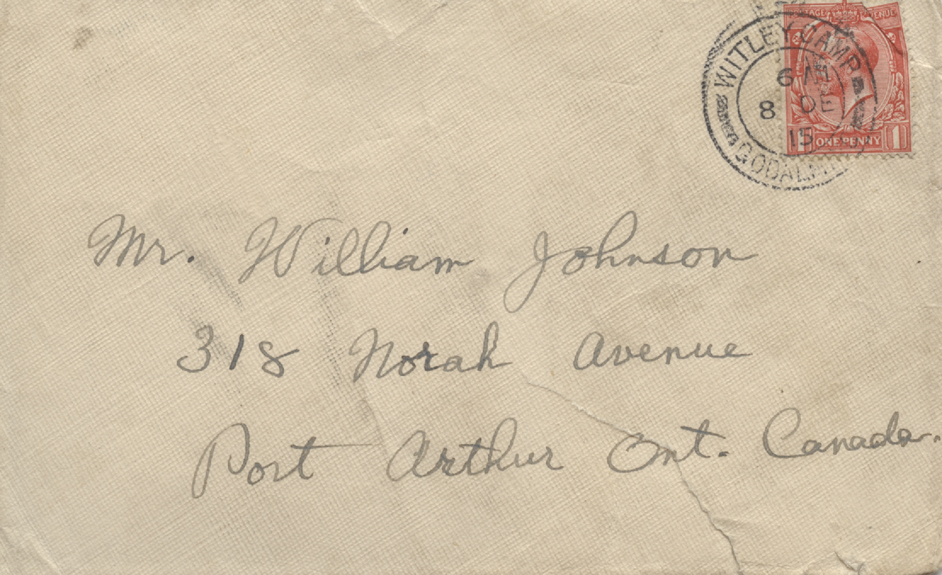 WITLEY CAMP
6 PM
8 DE
15
GODALMING
POSTAGE REVENUE
ONE PENNY 1
Mr. William Johnson
318 Norah Avenue
Port Arthur Ont. Canada.